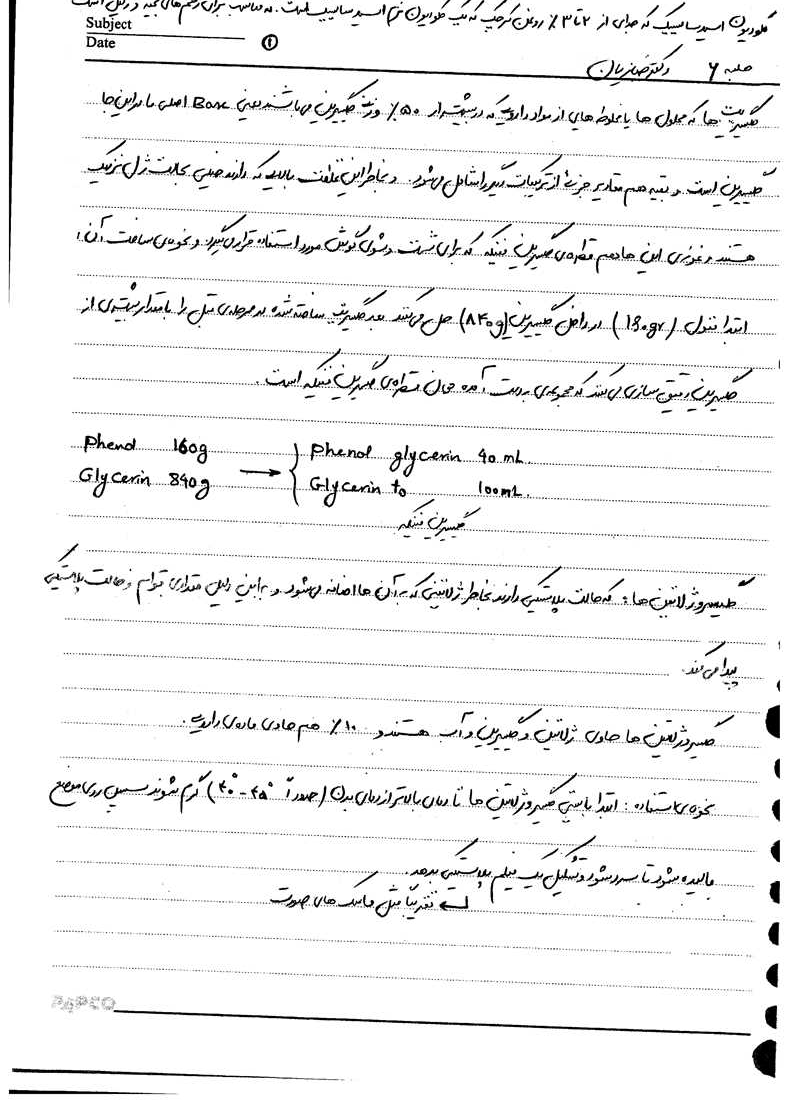 کلودیون اسید سالیسیلیک که جدای از ۲ تا ۳٪ روغن کرچک که یک کلودیون نرم اسید سالیسیلیک است. نه مناسب برای زخم های
Subject
Date
①
جلسه ۶ دکتر
گلیسریت ها که محلول ها یا مخلوط هایی از مواد دارویی که در بیشتر از ۵۰٪ وزن گلیسرین می باشند یعنی Base اصلی ما در این جا
گلیسیرین است و بقیه هم مقادیر جزئی از ترکیبات دیگر را شامل می شود. و بخاطر این غلظت بالایی که دارند خیلی بحالت ژل نزدیک
هستند و نمونه ی این ها هم قطره ی گلیسیرین فنیکه که برای شست و شوی گوش مورد استفاده قرار می گیرد و نحوه ی ساخت آن:
ابتدا فنول (160gr) در داخل گلیسیرین (۸۴۰g) حل می کنند بعد گلیسریت ساخته شده در مرحله ی قبل را با مقدار بیشتری از
گلیسیرین رقیق سازی می کنند که مجموعه ی بدست آمده همان قطره ی گلیسیرین فنیکه است.
Phenol 160g → { Phenol glycerin 40 mL
Glycerin 840g Glycerin to 100mL.
گلیسیرین فنیکه
گلیسروژلاتین ها: که حالت پلاستیکی دارند بخاطر ژلاتینی که به آن ها اضافه می شود و به این دلیل مقداری قوام و حالت پلاستیکی
پیدا می کند.
گلیسروژلاتین ها حاوی ژلاتین و گلیسیرین و آب هستند و ۱۰٪ هم حاوی ماده ی دارویی.
نحوه ی استفاده: ابتدا بایستی گلیسروژلاتین ها تا دمای بالاتر از دمای بدن (حدوداً ۴۵°-۴۰°) گرم شوند سپس روی موضع
مالیده شود تا سرد شود و تشکیل یک فیلم پلاستیکی بدهد.
تقریباً مثل ماسک های صورت
PAPCO